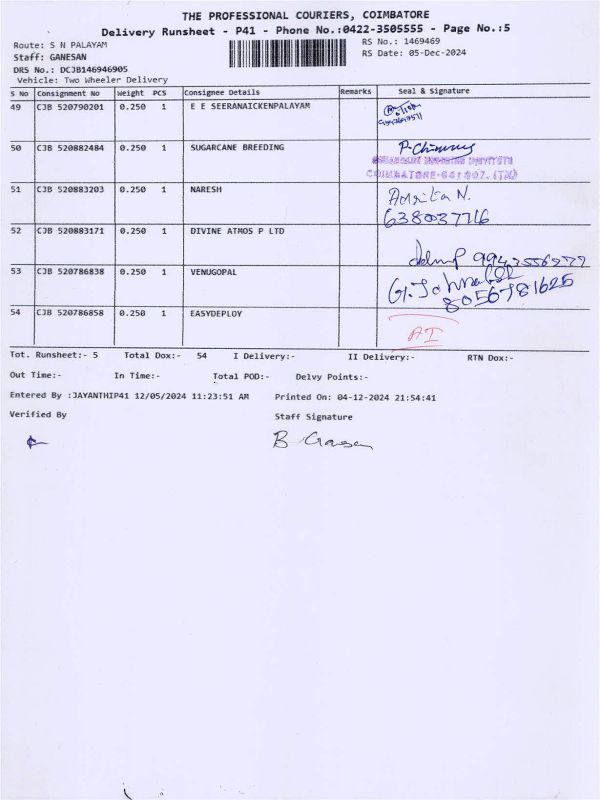 THE PROFESSIONAL COURIERS, COIMBATORE
Delivery Runsheet - P41 - Phone No.:0422-3505555 - Page No.:5
Route: S N PALAYAM
RS No.: 1469469
Staff: GANESAN
RS Date: 05-Dec-2024
DRS No.: DCJB146946905
Vehicle: Two Wheeler Delivery
S No Consignment No Weight PCS Consignee Details Remarks Seal & Signature
49 CJB 520790201 0.250 1 E E SEERANAICKENPALAYAM
50 CJB 520882484 0.250 1 SUGARCANE BREEDING
SUGARCANE BREEDING INSTITUTE
COIMBATORE-641 007. (TN)
51 CJB 520883203 0.250 1 NARESH
N.
6380037716
52 CJB 520883171 0.250 1 DIVINE ATMOS P LTD
53 CJB 520786838 0.250 1 VENUGOPAL
8056781625
54 CJB 520786858 0.250 1 EASYDEPLOY
AI
Tot. Runsheet:- 5 Total Dox:- 54 I Delivery:- II Delivery:- RTN Dox:-
Out Time:- In Time:- Total POD:- Delvy Points:-
Entered By :JAYANTHIP41 12/05/2024 11:23:51 AM Printed On: 04-12-2024 21:54:41
Verified By Staff Signature
B